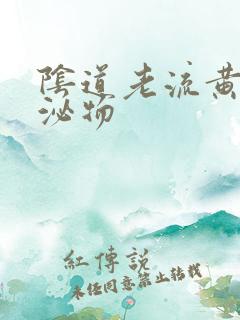 陰道老流黃
泌物
紅傳說
未经同意禁止转载